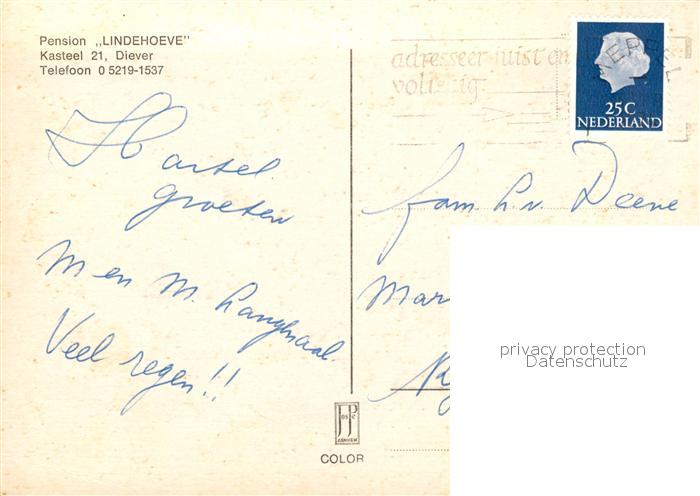 Pension „LINDEHOEVE"
Kasteel 21, Diever
Telefoon 0 5219-1537
adresseer juist en
volledig
MEPPEL
25C
NEDERLAND
Hartel.
groeten
M en M. Langhaal.
Veel regen!!
fam. L. v. Deene
Mar
privacy protection
Datenschutz
COLOR